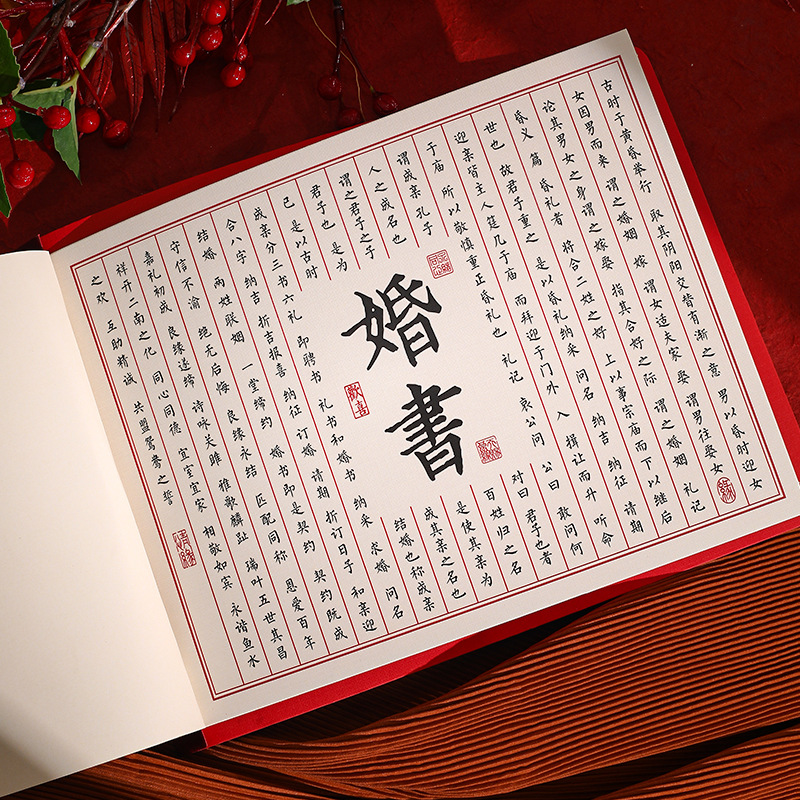 古时于黄昏举行 取其阴阳交替有渐之意 男以昏时迎女
女因男而来 谓之婚姻 嫁 谓女适夫家 娶 谓男往娶女
论其男女之身谓之嫁娶 指其合好之际 谓之婚姻 礼记
昏义 篇 昏礼者 将合二姓之好 上以事宗庙而下以继后
世也 故君子重之 是以昏礼纳采 问名 纳吉 纳征 请期
迎亲皆主人筵几于庙 而拜迎于门外 入 揖让而升 听命
于庙 所以敬慎重正昏礼也 礼记 哀公问 公曰 敢问何
谓成亲 孔子 对曰 君子也者
人之成名也 百姓归之名
谓之君子之子 是使其亲为
君子也 是为 成其亲之名也
已 是以古时 结婚也称成亲
婚書
献喜
成亲分三书六礼 即聘书 礼书和婚书 纳采 求婚 问名
合八字 纳吉 折吉报喜 纳征 订婚 请期 折订日子 和亲迎
结婚 两姓联姻 一堂缔约 婚书即是契约 契约既成
守信不渝 绝无后悔 良缘永结 匹配同称 恩爱百年
嘉礼初成 良缘遂缔 诗咏关雎 雅歌麟趾 瑞叶五世其昌
祥开二南之化 同心同德 宜室宜家 相敬如宾 永谐鱼水
之欢 互助精诚 共盟鸳鸯之誓